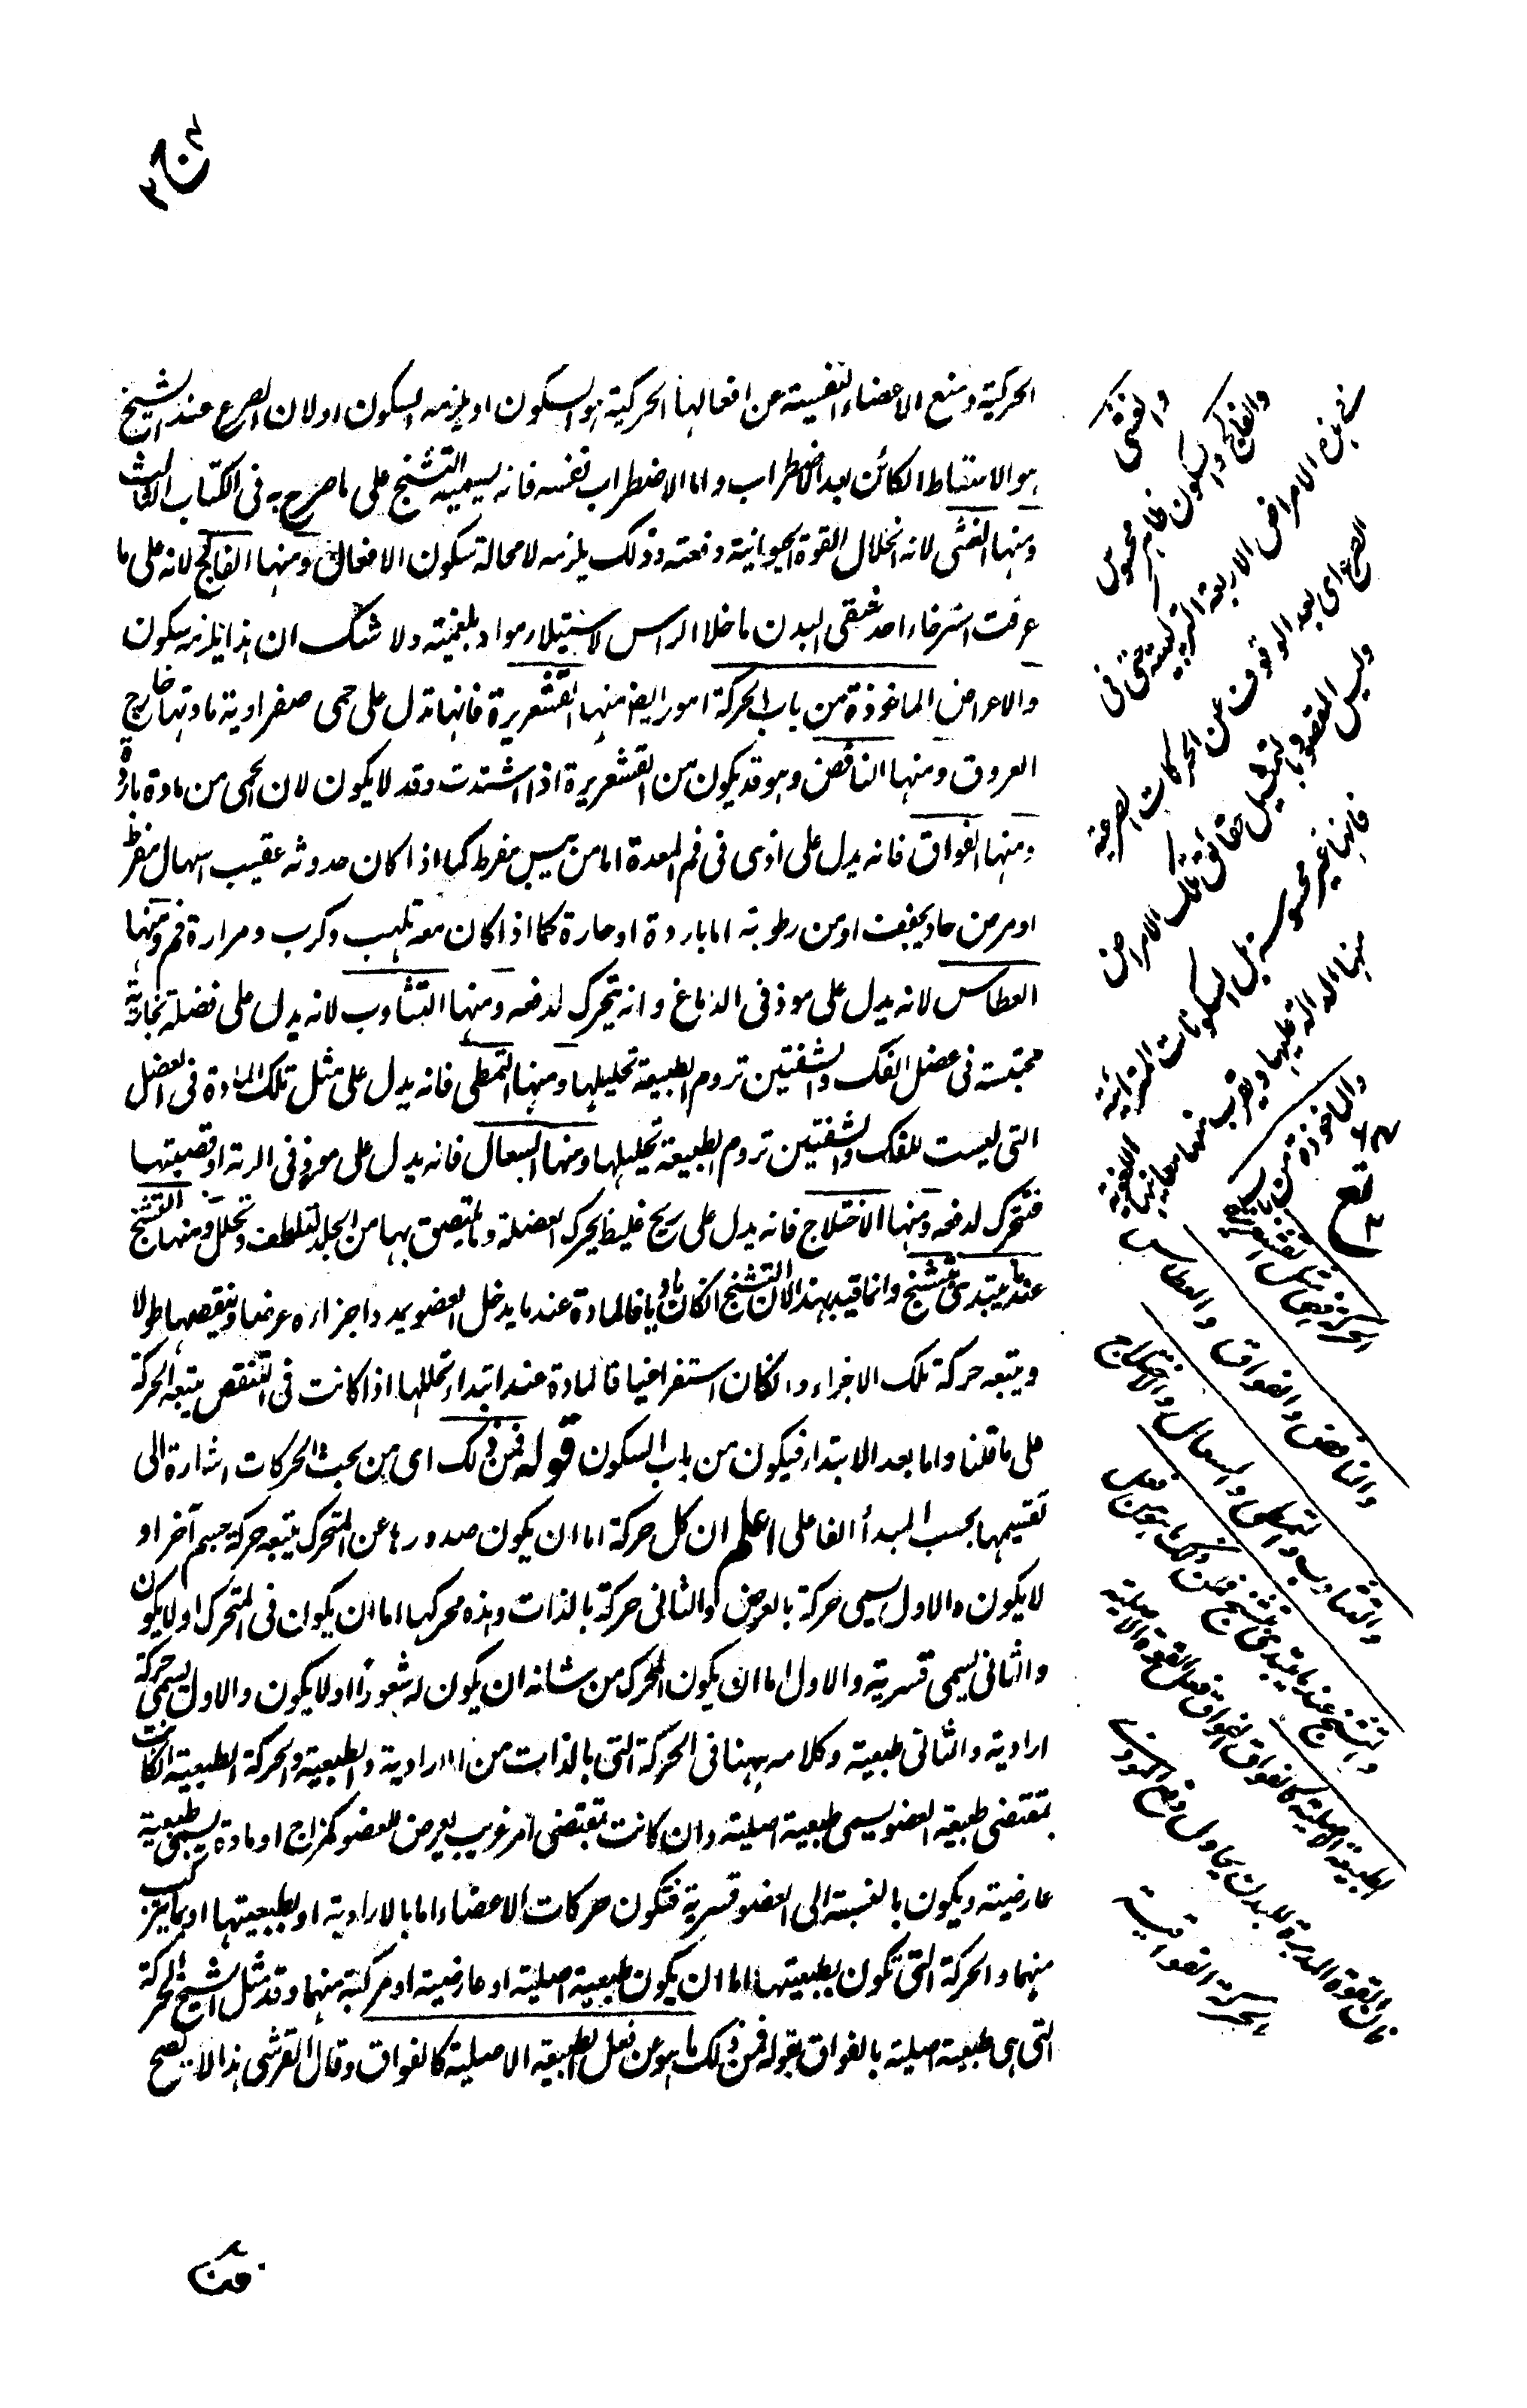 الحركية ومنع الاعضاء النفسية عن افعالها الحركية هو السكون او يلزمه السكون اولان الصرع عند الشيخ
هو الاسقاط الكائن بعد الاضطراب واما الاضطراب نفسه فانه يسميه التشنج على ما صرح به فى الكتاب الثالث
ومنها الغشى لانه انحلال القوة الحيوانية دفعة وذلك يلزمه لا محالة سكون الافعال ومنها الفالج لانه على ما
عرفت استرخاء احد شقى البدن ما خلا الراس لاستيلاء مواد بلغمية ولا شك ان هذا يلزمه سكون
والاعراض الماخوذة من باب الحركة امور ايضا منها القشعريرة فانها تدل على حمى صفراوية مادتها خارج
العروق ومنها النافض وهو قد يكون من القشعريرة اذا اشتدت وقد لا يكون لان الحمى من مادة باردة
ومنها الفواق فانه يدل على اذى فى فم المعدة اما من يبس مفرط كما اذا كان حدوثه عقيب اسهال مفرط
او من حاد يجفف او من رطوبة اما باردة او حارة كما اذا كان معه تلهب وكرب ومرارة فم ومنها
العطاس لانه يدل على موذ فى الدماغ وانه يتحرك لدفعه ومنها التثاوب لانه يدل على فضلة بخارية
محتبسة فى عضل الفك والشفتين تروم الطبيعة تحليلها ومنها التمطى فانه يدل على مثل تلك المادة فى العضل
التى ليست للفك والشفتين تروم الطبيعة تحليلها ومنها السعال فانه يدل على موذ فى الرئة او قصبتها
فتتحرك لدفعه ومنها الاختلاج فانه يدل على ريح غليظ يحرك العضلة وما يلتصق بها من الجلد لتلطف وتحلل ومنها التشنج
عندما يبتدى يتشنج وانما قيد بهذا لان التشنج ان كان ماديا فالمادة عندما يدخل العضو يمدد اجزاءه عرضا وينقصها طولا
ويتبعه حركة تلك الاجزاء وان كان استفراغيا فالمادة عند ابتداء تحللها اذا كانت فى التنقص يتبعه الحركة
على ما قلنا واما بعد الابتداء فيكون من باب السكون قوله فمن ذلك اى من بحث الحركات اشارة الى
تقسيمها بحسب المبدأ الفاعلى اعلم ان كل حركة اما ان يكون صدورها عن المتحرك يتبعه حركة جسم آخر او
لا يكون والاول يسمى حركة بالعرض والثانى حركة بالذات وهذه محركها اما ان يكون فى المتحرك او لا يكون
والثانى يسمى قسرية والاول اما ان يكون المحرك من شانه ان يكون له شعور او لا يكون والاول يسمى حركة
ارادية والثانى طبيعية وكلامه ههنا فى الحركة التى بالذات من الارادية والطبيعية والحركة الطبيعية ان كانت
بمقتضى طبيعة العضو يسمى طبيعية اصلية وان كانت بمقتضى امر غريب يعرض للعضو كمزاج او مادة يسمى طبيعية
عارضية ويكون بالنسبة الى العضو قسرية فتكون حركات الاعضاء اما بالارادية او بطبيعتها او بما يتركب
منهما والحركة التى تكون بطبيعتها اما ان يكون طبيعية اصلية او عارضية او مركبة منهما وقد مثل الشيخ الحركة
التى هى طبيعية اصلية بالفواق بقوله فمن ذلك ما هو من فعل الطبيعة الاصلية كالفواق وقال القرشى هذا لا يصح
والغشى
والفالج والسكون ظاهر محسوس
فى هذه الامراض الاربعة
الصرع اى بعد الوقوف عن الحركات الصرعية
وليس المقصود بالتمثيل حقائق تلك الامراض
فانها غير محسوسة بل السكونات
والماخوذة من باب
الحركة مثل القشعريرة
والنافض والفواق والعطاس
والتثاوب والتمطى والسعال والاختلاج
والتشنج عندما يبتدى يتشنج فمن ذلك ما هو من فعل
الطبيعة الاصلية كالفواق
الحركة الفواقية